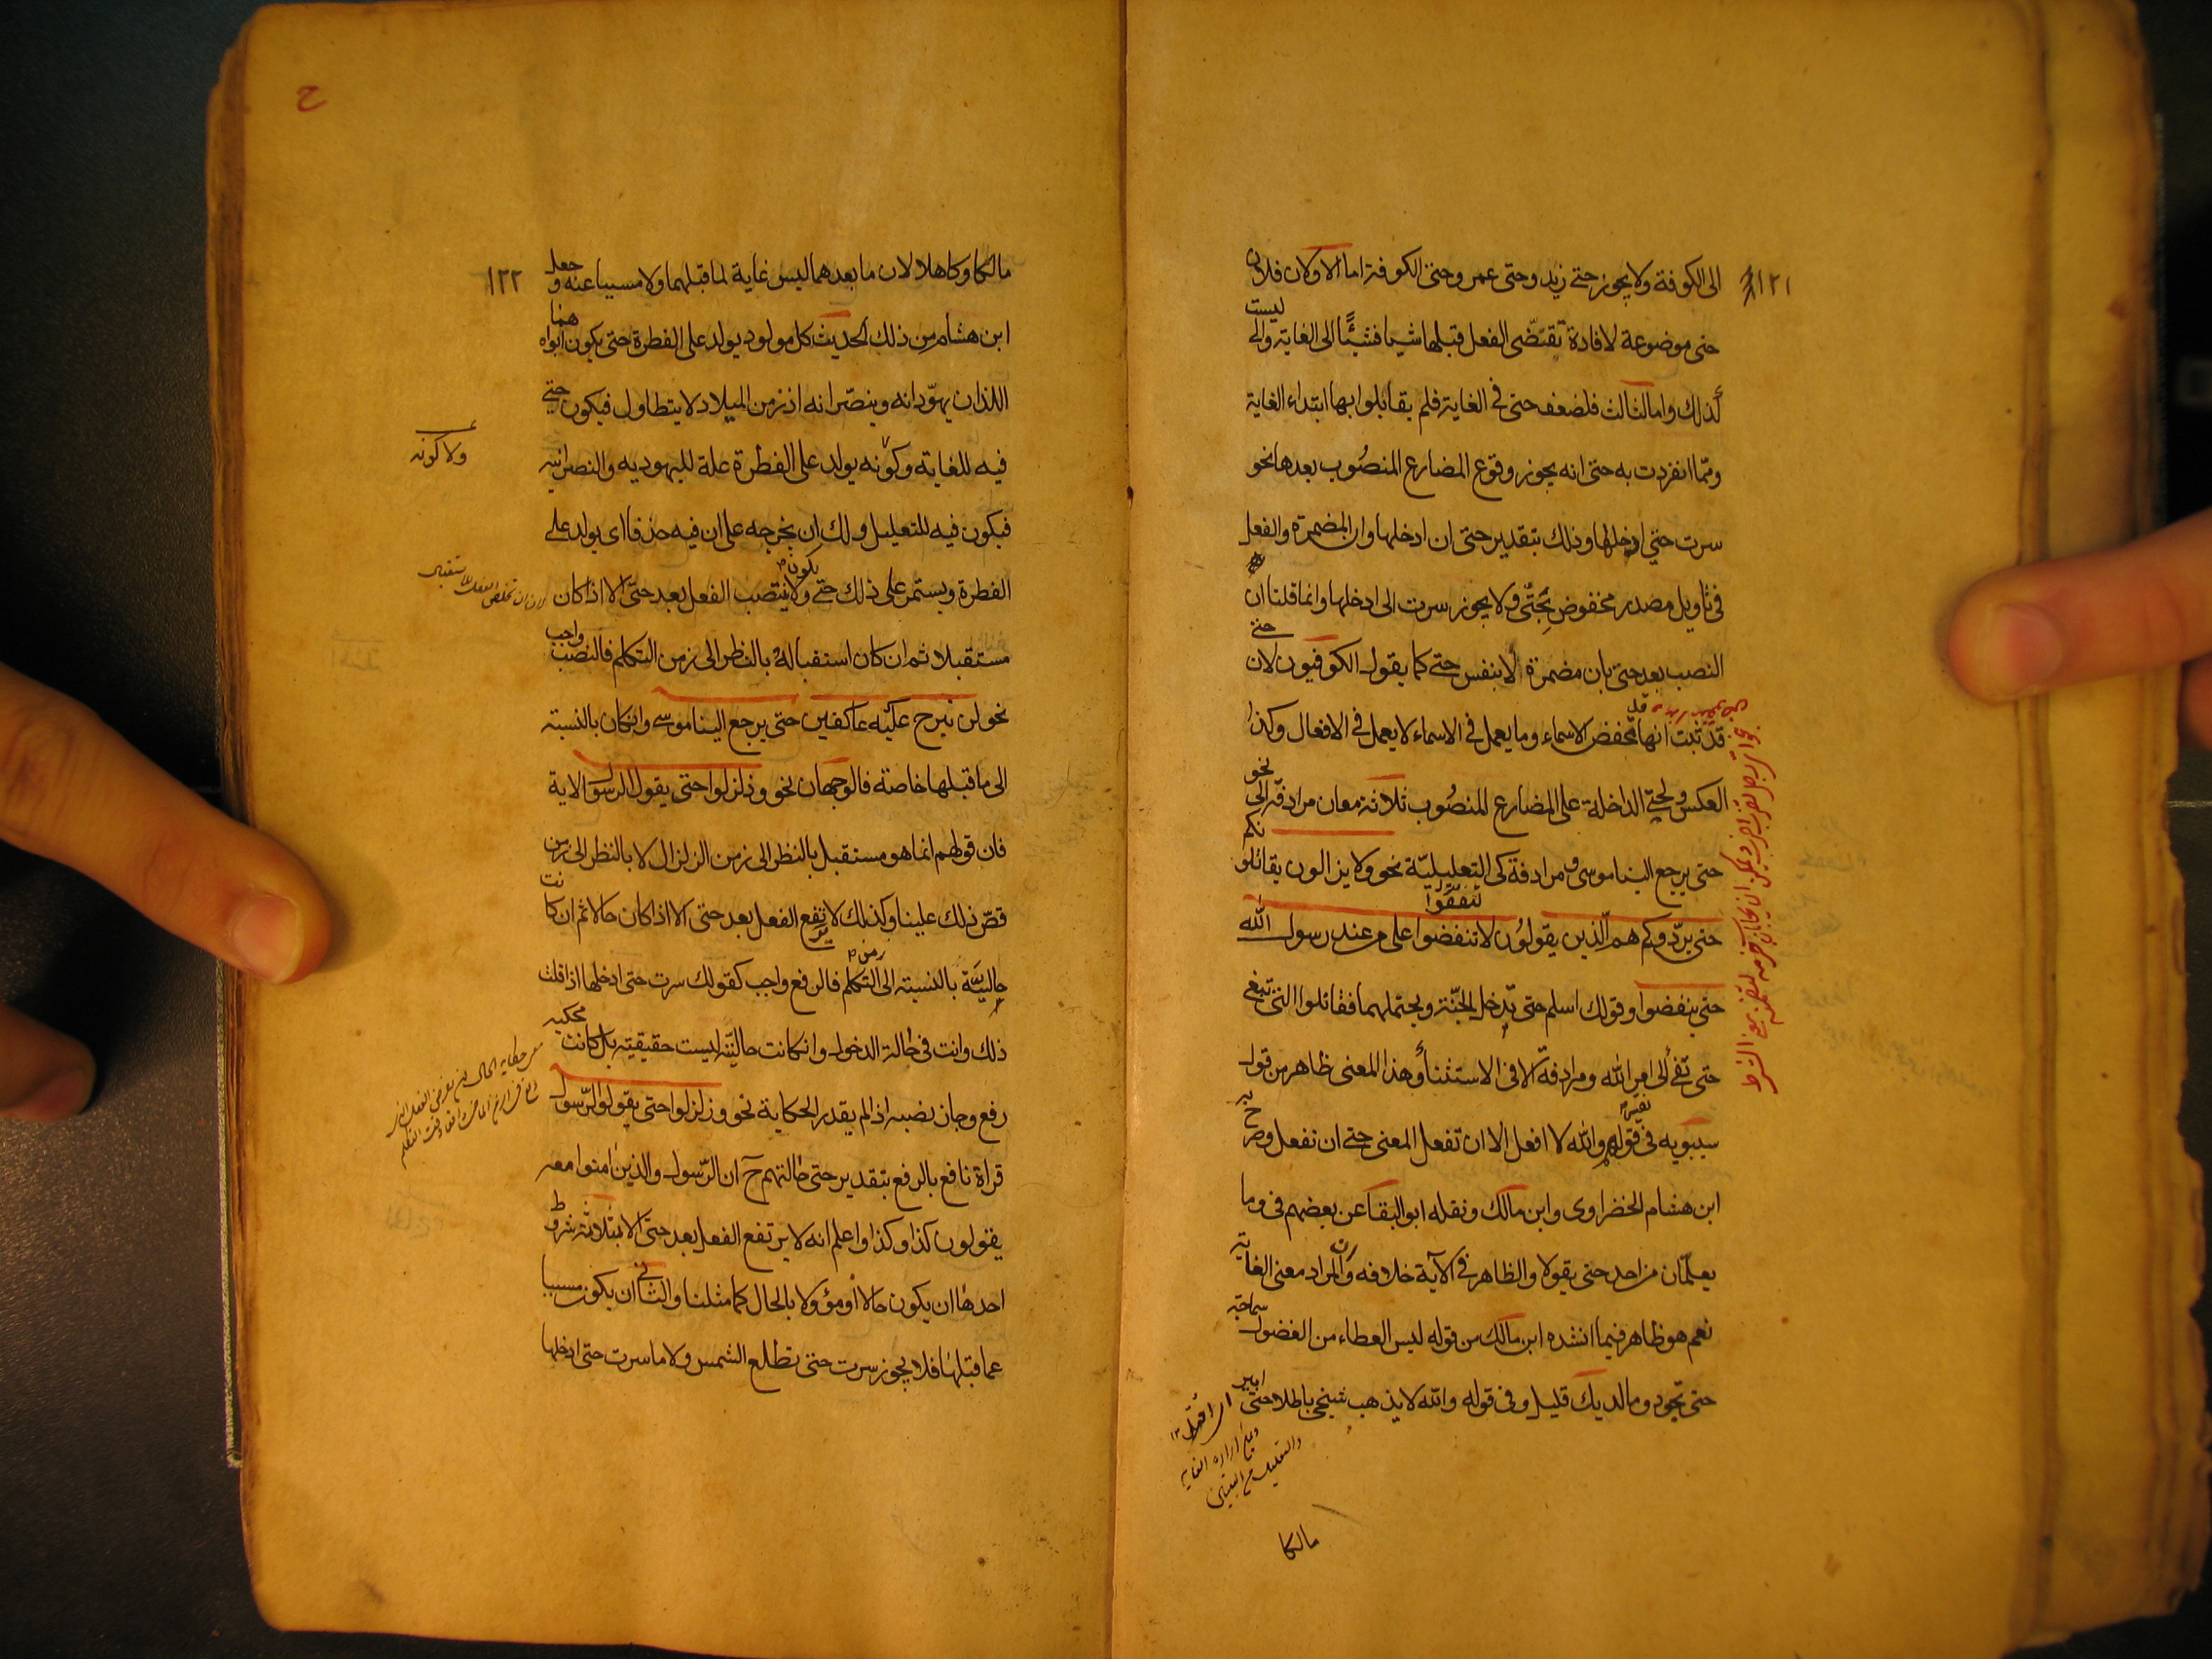 ١٢١
الى الكوفة ولا يجوز حتى زيد وحتى عمر وحتى الكوفة اما الاولان فلان
حتى موضوعة لافادة تقضى الفعل قبلها شيئا فشيئًا الى الغاية والى ليست
كذلك واما الثالث فلضعف حتى فى الغاية فلم يقابلوا بها ابتداء الغاية
وممّا انفردت به حتى انه يجوز وقوع المضارع المنصُوب بعدها نحو
سرت حتى ادخلها وذلك بتقدير حتى ان ادخلها وان المضمرة والفعل
فى تاويل مصدر مخفوض بِحتّى ولا يجوز سرت الى ادخلها وانما قلنا ان
النصب بعد حتى بان مضمرة لا بنفس حتى كما يقول الكوفيون لان حتى
قد ثبت انها تخفض الاسماء وما يعمل فى الاسماء لا يعمل فى الافعال وكذا
العكس ولحتى الداخلة على المضارع المنصُوب ثلاثة معان مرادفة الى نحو
حتى يرجع الينا موسى ومرادفة كى التعليليّة نحو ولا يزالون يقاتلونكم
حتى يردّوكم هم الّذين يقولوُن لا تنفقوا على من عند رسول الله
حتى ينفضوا وقولك اسلم حتى تدخل الجنّة ويحتملهما فقاتلوا التى تبغى
حتى تفئ الى امر الله ومرادفة الا فى الاستثناء وهذا المعنى ظاهر من قول
سيبويه فى تفسير قولهم والله لا افعل الا ان تفعل المعنى حتى ان تفعل وصرح به
ابن هشام الخضراوى وابن مالك ونقله ابو البقا عن بعضهم فى وما
يعلّمان من احد حتى يقولا والظاهر فى الآية خلافه وان المراد معنى الغاية
نعم هو ظاهر فيما انشده ابن مالك من قوله ليس العطاء من الفضول سماحة
حتى تجود وما لديك قليل وفى قوله والله لا يذهب شيخى باطلا حتى ابير
مالكا
١٢٢
مالكا وكاهلا لان ما بعدهما ليس غاية لما قبلهما ولا مسببا عنه وجعل
ابن هشام من ذلك الحديث كل مولود يولد على الفطرة حتى يكون ابواه هما
اللذان يهوّدانه وينصّرانه اذ زمن الميلاد لا يتطاول فيكون حتى
فيه للغاية وكونه يولد على الفطرة علة لليهوديه والنصرانيه
ولا كونه
فيكون فيه للتعليل ولك ان نخرجه على ان فيه حذفا اى يولد على
الفطرة ويستمر على ذلك حتى يكون ولا ينتصب الفعل بعد حتى الا اذا كان
مستقبلا ثم ان كان استقباله بالنظر الى زمن التكلم فالنصب واجب
نحو لن نبرح عليه عاكفين حتى يرجع الينا موسى وان كان بالنسبة
الى ما قبلها خاصة فالوجهان نحو وزلزلوا حتى يقول الرسول الاية
فان قولهم انما هو مستقبل بالنظر الى زمن الزلزال لا بالنظر الى زمن
قصّ ذلك علينا وكذلك لا يرتفع الفعل بعد حتى الا اذا كان حالا ثم ان كانت
حاليته بالنسبة الى زمن التكلم فالرفع واجب كقولك سرت حتى ادخلها اذا قلت
ذلك وانت فى حالة الدخول وان كانت حاليته ليست حقيقية بل كانت محكيه
رفع وجاز نصبه اذا لم يقدر الحكاية نحو وزلزلوا حتى يقول الرّسول
قراة نافع بالرفع بتقدير حتى حالتهم ح ان الرّسول والذين امنوا معه
يقولون كذا وكذا واعلم انه لا يرتفع الفعل بعد حتى الا بثلاثة شروط
احدها ان يكون حالا أو مؤولا بالحال كما مثلنا والثانى ان يكون مسببا
عما قبلها فلا يجوز سرت حتى تطلع الشمس ولا ما سرت حتى ادخلها